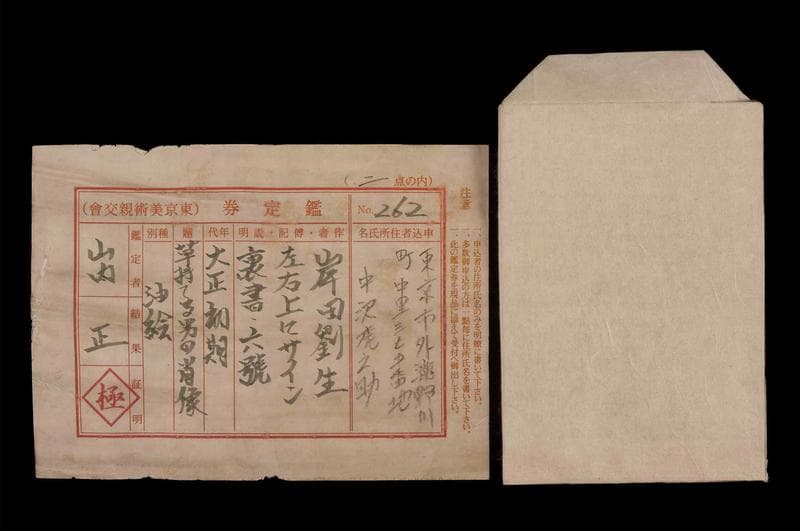 (二点の内)
注意
一、申込者の住所氏名のみを明瞭に書いて下さい。
一、多数御申込の方は一點毎に住所氏名を書いて下さい。
一、此の鑑定券を現品に添えて受付へ御出し下さい。
鑑定券 (東京美術親交會)
No. 262
申込者住所氏名
東京市外瀧野川
町中里三七五番地
中沢虎之助
作者・傳記・説明
岸田劉生
左右上にサイン
裏書・六號
年代
大正初期
題
草持てる男の肖像
種別
油絵
鑑定者結果証明
山内
正
極